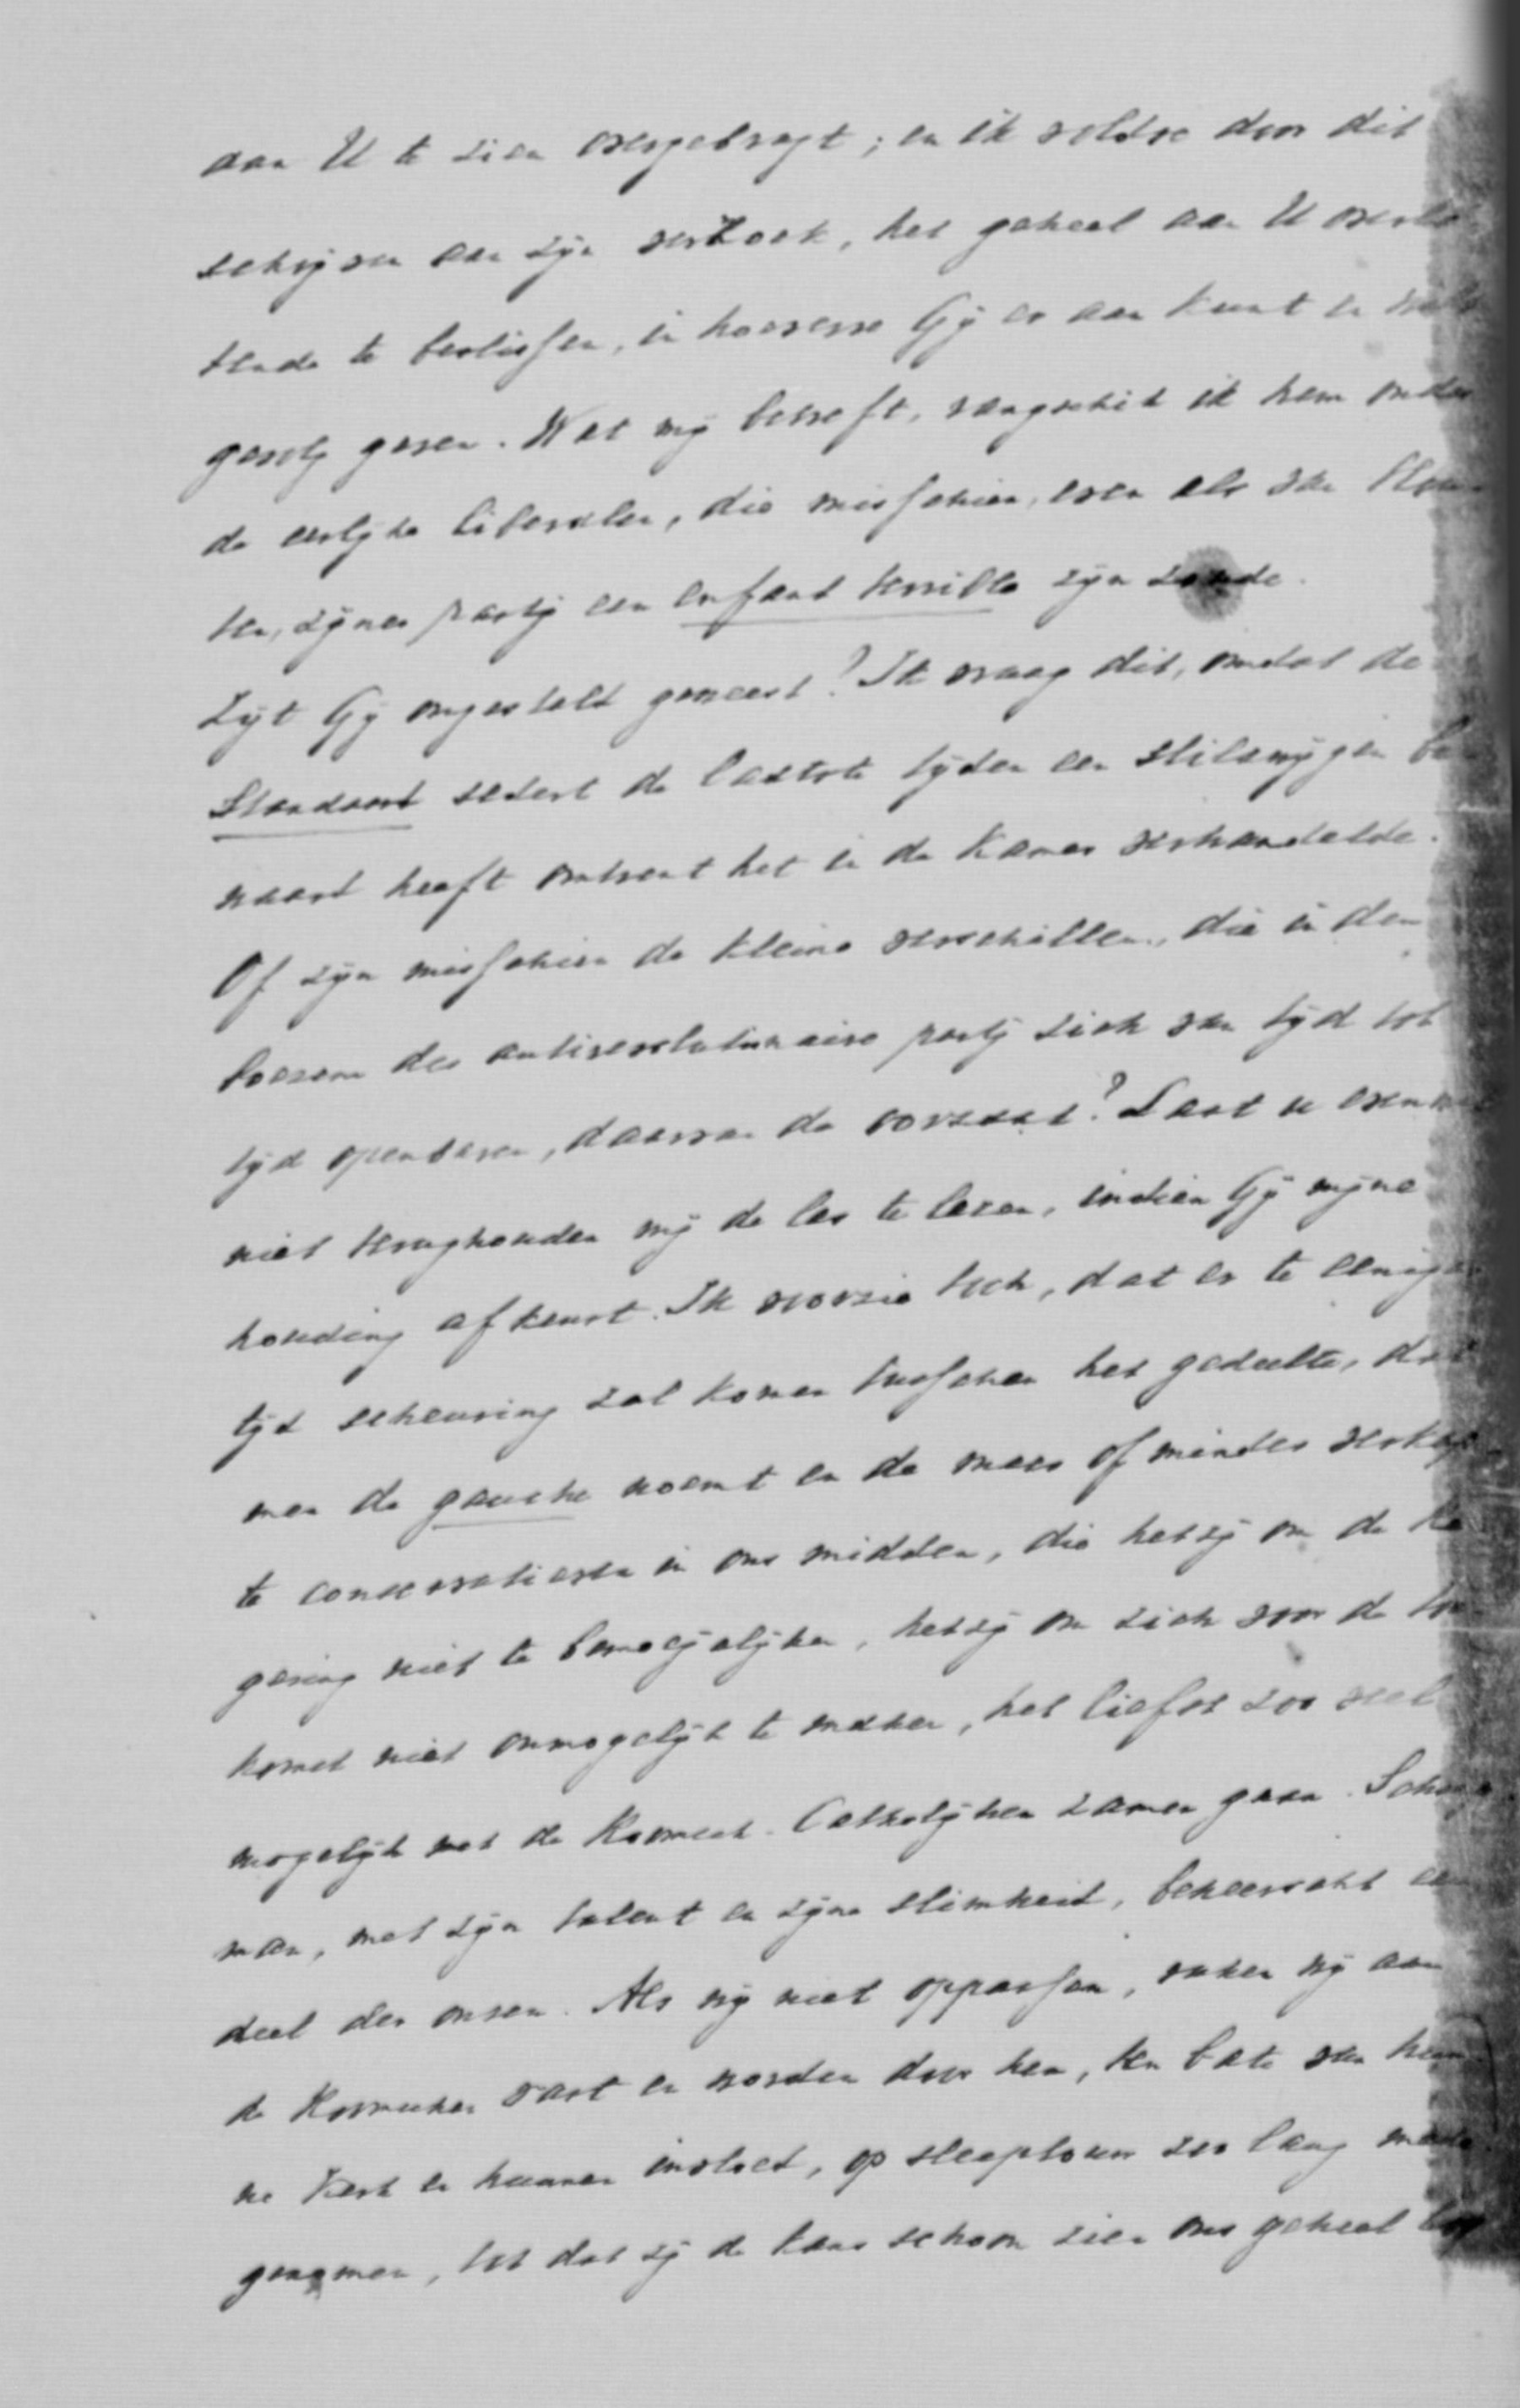 aan U te zien overgebragt; en ik voldoe door dit
schrijven aan zijn verzoek, het geheel aan U overla-
tende te beslissen, in hoeverre Gij er aan kunt en wilt
gevolg geven. Wat mij betreft, rangschik ik hem onder
de eerlijke liberalen, die misschien, even als van
ten, zijner partij een enfant terrible zijn zoude.
Zijt Gij ongesteld geweest? Ik vraag dit, omdat de
Standaard sedert de laatste tijden een stilzwijgen be-
waard heeft omtrent het in de Kamer verhandelde.
Of zijn misschien de kleine verschillen, die in den
boezem der antirevolutionaire partij zich van tijd tot
tijd openbaren, daarvan de oorzaak? Laat u even
niet terughouden mij de les te lezen, indien Gij mijne
houding afkeurt. Ik voorzie toch, dat er te eeniger
tijd scheuring zal komen tusschen het gedeelte, dat
men de gauche noemt en de meer of minder verkap-
te conservatieven in ons midden, die hetzij om de Re-
gering niet te bemoeijelijken, hetzij om zich voor de toe-
komst niet onmogelijk te maken, het liefst zoo veel
mogelijk met de Roomsch-Catholijken zamen gaan. Schaep-
man, met zijn talent en zijne slimheid, beheerscht een
deel der onzen. Als wij niet oppassen, raken wij aan
de Roomschen vast en worden door hen, ten bate van hun-
ne Kerk en hunnen invloed, op sleeptouw zoo lang mede
genomen, tot dat zij de kans schoon zien ons geheel